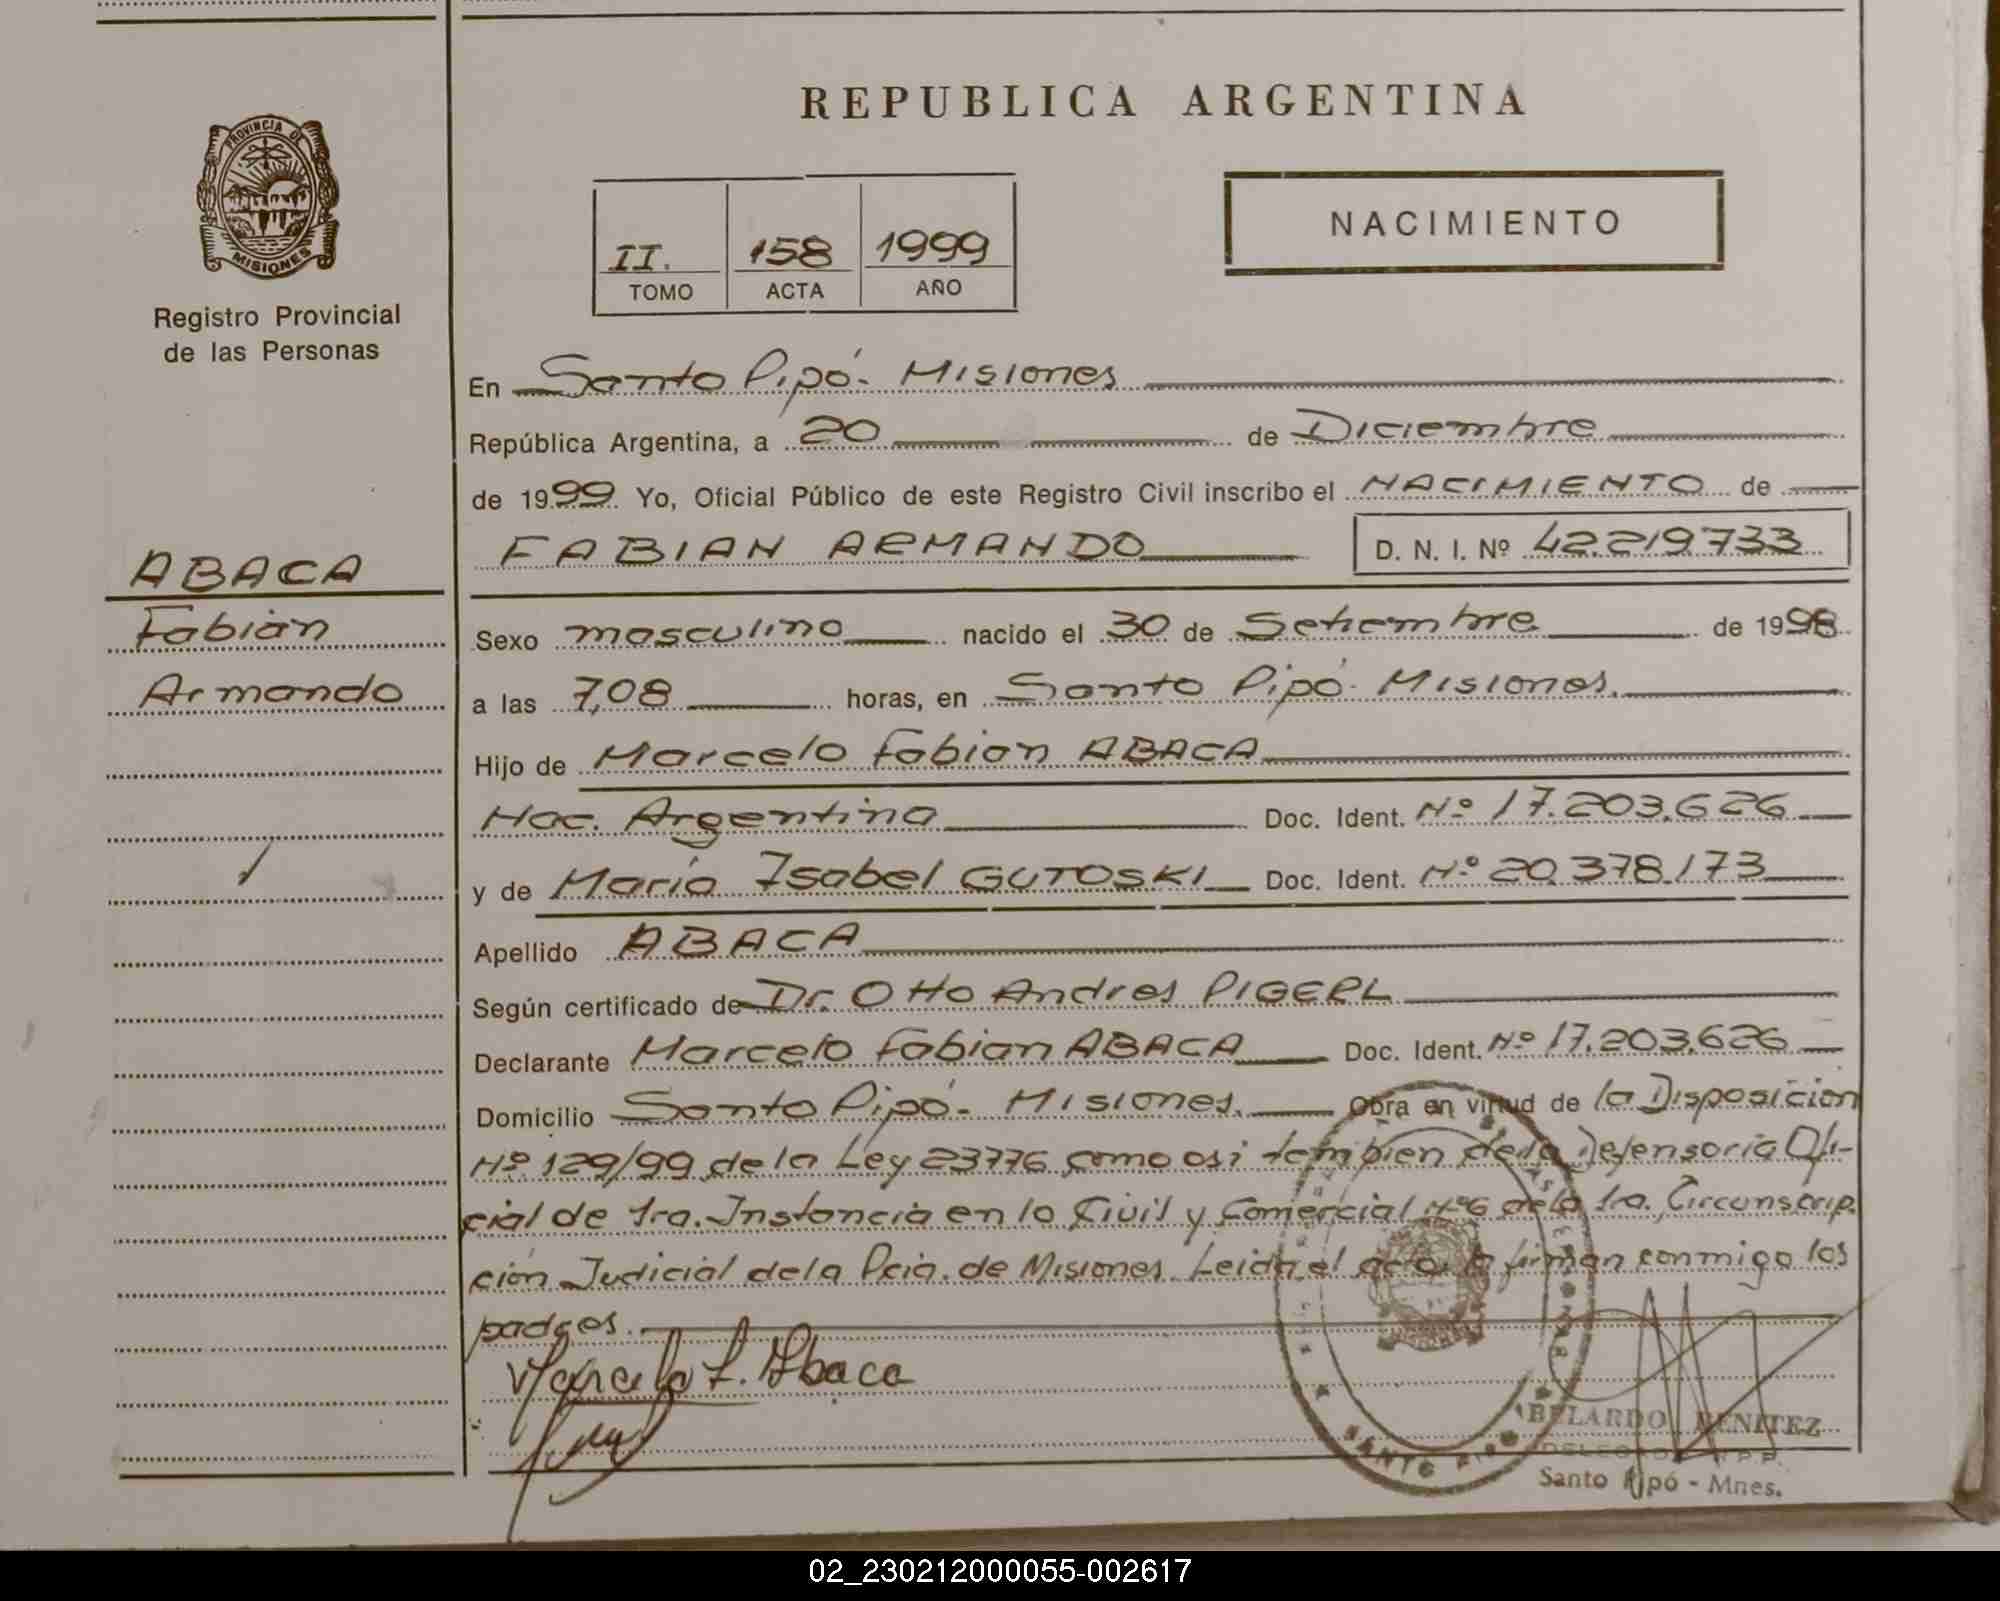 REPUBLICA ARGENTINA
PROVINCIA DE
MISIONES
Registro Provincial
de las Personas
NACIMIENTO
II. 158 1999
TOMO ACTA AÑO
En Santo Pipó. Misiones
República Argentina, a 20 de Diciembre
de 1999. Yo, Oficial Público de este Registro Civil inscribo el NACIMIENTO de
FABIAN ARMANDO D. N. I. Nº 42.219.733
ABACA
Fabián
Armando
Sexo masculino nacido el 30 de Setiembre de 1998
a las 7,08 horas, en Santo Pipó. Misiones.
Hijo de Marcelo Fabian ABACA
Nac. Argentina Doc. Ident. Nº 17.203.626
y de María Isabel GUTOSKI Doc. Ident. Nº 20.378.173
Apellido ABACA
Según certificado de Dr. Otto Andres PIGERL
Declarante Marcelo Fabian ABACA Doc. Ident. Nº 17.203.626
Domicilio Santo Pipó. Misiones. Obra en virtud de la Disposición
Nº 129/99 de la Ley 23776 como asi tambien de la Defensoría Ofi-
cial de 1ra. Instancia en lo Civil y Comercial Nº6 de la 1ra. Circunscrip-
ción Judicial de la Pcia. de Misiones. Leida el acta la firman conmigo los
padres.
Marcelo F. Abaca
SANTO PIPO
ABELARDO BENITEZ
DELEGADO R.P.P.
Santo Pipó - Mnes.
02_230212000055-002617